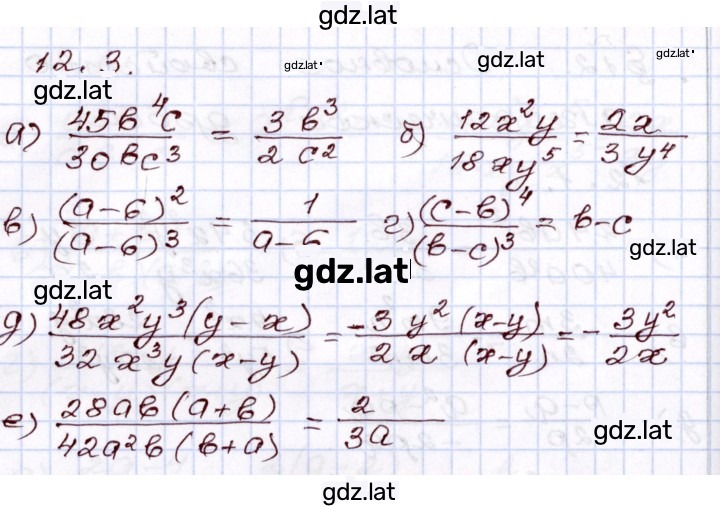 gdz.lat
12.3.
gdz.lat gdz.lat gdz.lat gdz.lat
а) 45b⁴c/30bc³ = 3b³/2c² б) 12x²y/18xy⁵ = 2x/3y⁴
в) (a-б)²/(a-б)³ = 1/a-б г) (c-b)⁴/(b-c)³ = b-c
gdz.lat gdz.lat gdz.lat
д) 48x²y³(y-x)/32x³y(x-y) = -3y²(x-y)/2x(x-y) = -3y²/2x
е) 28ab(a+b)/42a²b(b+a) = 2/3a
gdz.lat
gdz.lat